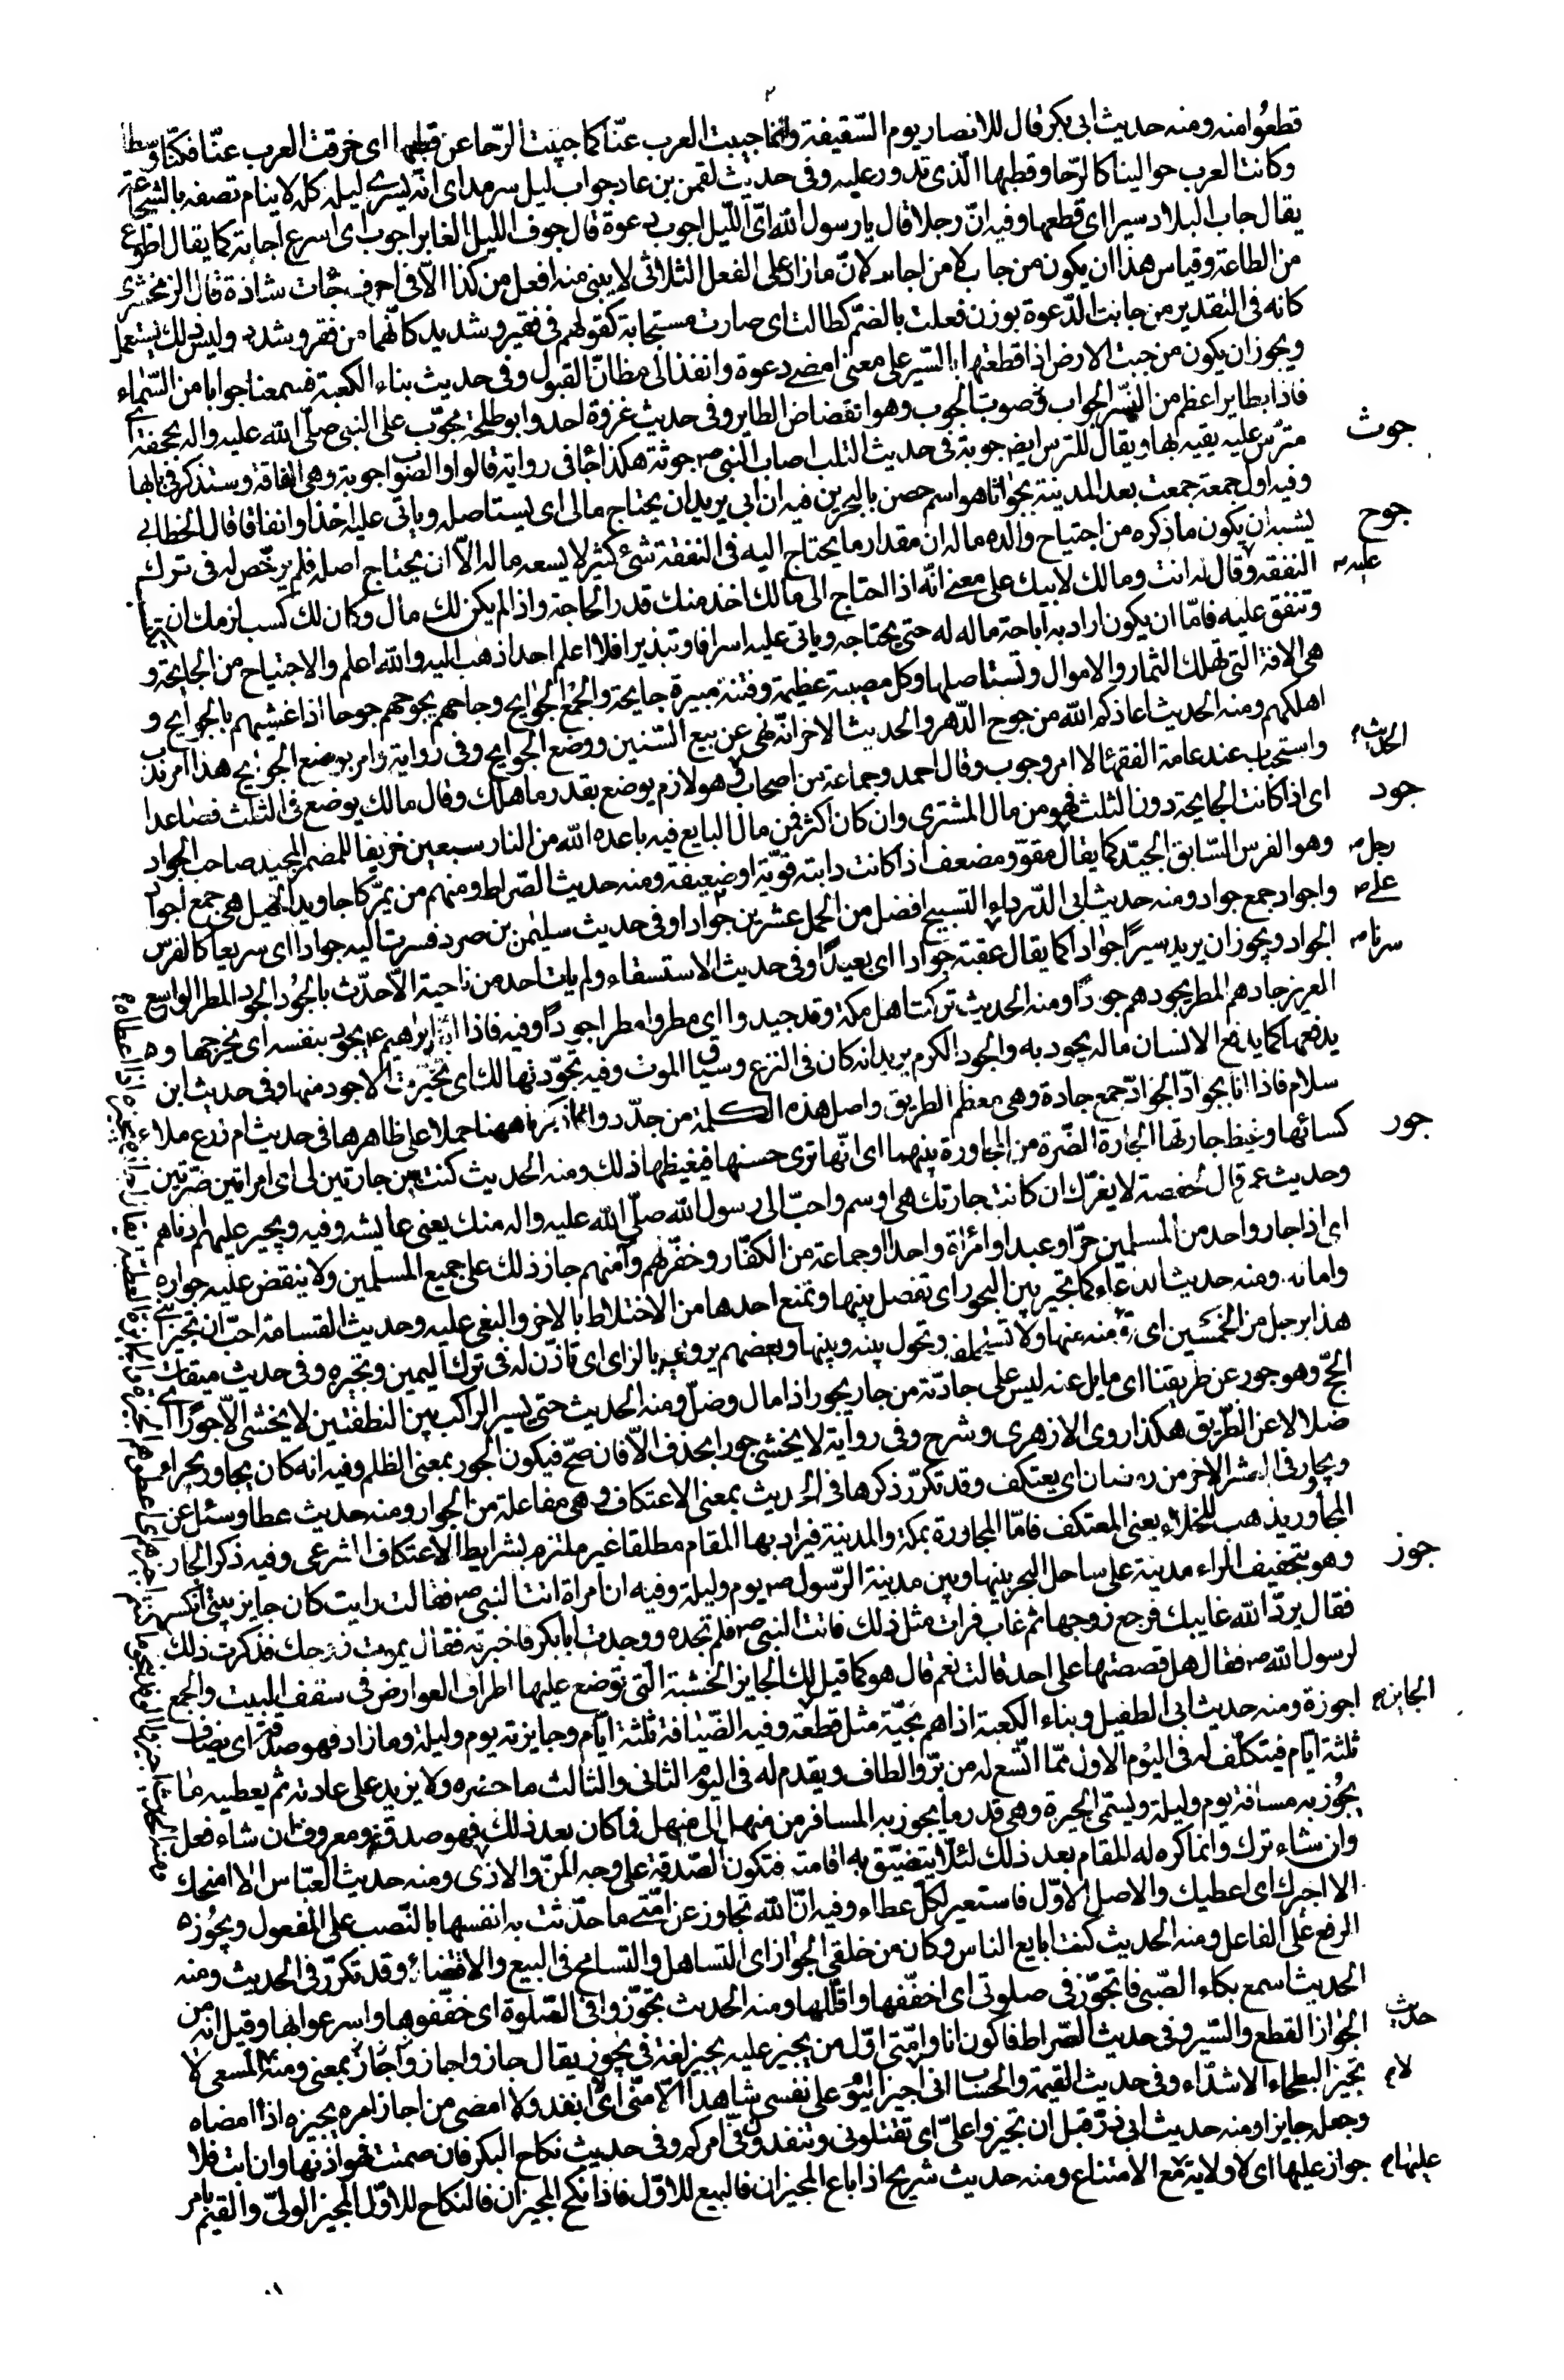 قطعوا منه ومنه حديث ابى بكر قال للانصار يوم السّقيفة وانما جيبت العرب عنّا كما جيبت الرّحا عن قطبها اى خرقت العرب عنّا فكنّا وسطا
وكانت العرب حوالينا كالرّحا وقطبها الّذى تدور عليه وفى حديث لقمن بن عاد جواب ليل سرمد اى انّه يسرى ليله كله لا ينام تصفه بالشجاعة
يقال جاب البلاد سيرا اى قطعها وفيه انّ رجلا قال يا رسول الله اىّ اللّيل اجوب دعوة قال جوف الليل الغابر اجوب اى اسرع اجابة كما يقال اطوع
من الطاعة وقياس هذا ان يكون من جاب لا من اجاب لانّ ما زاد على الفعل الثلاثى لا يبنى منه افعل من كذا الاّ فى احرف جائت شاذة قال الزمخشرى
كانه فى التقدير من جابت الدّعوة بوزن فعلت بالضمّ كطالت اى صارت مستجابة كقولهم فى فقير وشديد كانّهما من فقر وشدد وليس ذلك بمستعمل
ويجوز ان يكون من جبت الارض اذا قطعتها بالسّير على معنى امضى دعوة وانفذ الى مظانّ القبول وفى حديث بناء الكعبة فسمعنا جوابا من السّماء
فاذا بطاير اعظم من النّسر الجواب صوت الجوب وهو انقضاض الطاير وفى حديث غزوة احد وابو طلحة مجوّب على النبى صلّى الله عليه واله بحجفة اى
جوث مترّس عليه يقيه بها ويقال للترس ايض جوبة فى حديث التلب اصاب النبى ص جوثة هكذا جا فى رواية قالوا والصواب جوبة وهى الفاقة وستذكر فى بابها
وفيه اول جمعة جمعت بعد المدينة بجواثا هو اسم حصن بالبحرين فيه ان ابى يريد ان يجتاح مالى اى يستاصله وياتى عليه اخذا وانفاقا قال الخطابى
جوح يشبه ان يكون ما ذكره من اجتياح والده ماله ان مقدار ما يحتاج اليه فى النفقة شئ كثير لا يسعه ماله الاّ ان يجتاح اصله فلم يرخّص له فى ترك
عليه م النفقة وقال له انت ومالك لابيك على معنى انّه اذا احتاج الى مالك اخذ منك قدر الحاجة واذا لم يكن لك مال وكان لك كسب لزمك ان
وتنفق عليه فامّا ان يكون اراد به اباحة ماله له حتى يجتاحه وياتى عليه اسرافا وتبذيرا فلا اعلم احدا ذهب اليه والله اعلم والاجتياح من الجايحة و
هى الافة التى تهلك الثمار والاموال وتستاصلها وكل مصيبة عظيمة وفتنة مبيرة جايحة والجمع الجوايح وجاحهم يجوحهم جوحا اذا غشيهم بالجوايح و
اهلكهم ومنه الحديث اعاذكم الله من جوح الدّهر والحديث الاخر انّه نهى عن بيع السّنين ووضع الجوايح وفى رواية وامر بوضع الجوايح هذا امر ندب
الحديث م واستحباب عند عامة الفقهاء لا امر وجوب وقال احمد وجماعة من اصحاب هو لازم يوضع بقدر ما هلك وقال مالك يوضع فى الثلث فصاعدا
جود اى اذا كانت الجايحة دون الثلث فهو من مال المشترى وان كان اكثر فمن مال البايع فيه باعده الله من النار سبعين خريفا للمضمر المجيد صاحب الجواد
رجل م وهو الفرس السّابق الجيّد كما يقال مقوّ ومضعف اذا كانت دابته قويّة او ضعيفة ومنه حديث الصّراط ومنهم من يمرّ كاجاويد الخيل هى جمع اجواد
على م واجواد جمع جواد ومنه حديث ابى الدّرداء التسبيح افضل من الحمل عشرين جوادا وفى حديث سليمن بن صرد فسرت اليه جوادا اى سريعا كالفرس
سرنا م الجواد ويجوز ان يريد سيرًا جوادا كما يقال عقبة جوادا اى بعيدًا وفى حديث الاستسقاء ولم يات احد من ناحية الاّ حدّث بالجود الجود المطر الواسع
الغزير جادهم المطر يجودهم جودًا ومنه الحديث تركت اهل مكة وقد جيدوا اى مطروا مطرا جودًا وفيه فاذا ابنه ابرهيم ع يجود بنفسه اى يخرجها و
يدفعها كما يدفع الانسان ماله يجود به والجود الكرم يريد انه كان فى النزع وسياق الموت وفيه تجوّدتها لك اى تخيّرت الاجود منها وفى حديث ابن
سلام فاذا انا بجوادّ الجوادّ جمع جادة وهى معظم الطريق واصل هذه الكلمة من جدّد وانما ذكرناها ههنا حملا على ظاهرها فى حديث ام زرع ملاء
جور كسائها وغيظ جارتها الجارة الضّرة من المجاورة بينهما اى انّها ترى حسنها فيغيظها ذلك ومنه الحديث كنت بين جارتين لى اى امراتين ضرّتين
وحديث عمر قال لحفصة لا يغرّك ان كانت جارتك هى اوسم واحبّ الى رسول الله صلّى الله عليه واله منك يعنى عايشه وفيه ويجير عليهم ادناهم
اى اذا جار واحد من المسلمين حرّ او عبد او امرأة واحدا او جماعة من الكفّار وخفّرهم وآمنهم جاز ذلك على جميع المسلمين ولا ينقض عليه جواره
وامانه ومنه حديث الدعاء كما تجير بين البحور اى تفصل بينها وتمنع احدها من الاختلاط بالاخر والبغى عليه وحديث القسامة احبّ ان تجير ابنى
هذا برجل من الخمسين اى تؤمنه منها ولا تستحلفه وتحول بينه وبينها وبعضهم يرويه بالزاى اى تاذن له فى ترك اليمين وتجيزه وفى حديث ميقات
الحجّ وهو جور عن طريقنا اى مايل عنه ليس على جادّته من جار يجور اذا مال وضلّ ومنه الحديث حتى يسير الراكب بين النطفتين لا يخشى الاّ جورًا اى
ضلالا عن الطّريق هكذا روى الازهرى وشرح وفى رواية لا يخشى جورا بحذف الاّ فان صحّ فيكون الجور بمعنى الظلم وفيه انه كان يجاور بحراء
ويجاور فى العشر الاخر من رمضان اى يعتكف وقد تكرّر ذكرها فى الحديث بمعنى الاعتكاف وهى مفاعلة من الجوار ومنه حديث عطا وسئل عن
المجاور يذهب للخلاء يعنى المعتكف فامّا المجاورة بمكة والمدينة فيراد بها المقام مطلقا غير ملتزم بشرايط الاعتكاف الشرعى وفيه ذكر الجار
جوز وهو بتخفيف الراء مدينة على ساحل البحر بينها وبين مدينة الرّسول ص يوم وليلة وفيه ان امراة اتت النبى ص فقالت رايت كان جايز بيتى انكسر
فقال يردّ الله غايبك فرجع زوجها ثم غاب فرات مثل ذلك فاتت النبى ص فلم تجده ووجدت ابا بكر فاخبرته فقال يموت زوجك فذكرت ذلك
لرسول الله ص فقال هل قصصتها على احد قالت نعم قال هو كما قيل لك الجايز الخشبة الّتى توضع عليها اطراف العوارض فى سقف البيت والجمع
الجايز م اجوزة ومنه حديث ابى الطفيل وبناء الكعبة اذا هم بحيّة مثل قطعة وفيه الضّيافة ثلثة ايّام وجايزته يوم وليلة وما زاد فهو صدقة اى يضاف
ثلثة ايّام فيتكلّف له فى اليوم الاول ممّا اتّسع له من برّ والطاف ويقدم له فى اليوم الثانى والثالث ما حضره ولا يزيد على عادته ثم يعطيه ما
يجوز به مسافة يوم وليلة ويسمّى الجيزة وهى قدر ما يجوز به المسافر من منهل الى منهل فما كان بعد ذلك فهو صدقة ومعروف ان شاء فعل
وان شاء ترك وانما كره له المقام بعد ذلك لئلاّ يتضيّق به اقامته فتكون الصّدقة على وجه المنّ والاذى ومنه حديث العبّاس الا امنحك
الا اجيزك اى اعطيك والاصل الاوّل فاستعير لكلّ عطاء وفيه انّ الله تجاوز عن امّتى ما حدّثت به انفسها بالنّصب على المفعول ويجوز
الرفع على الفاعل ومنه الحديث كنت ابايع الناس وكان من خلقى الجواز اى التساهل والتسامح فى البيع والاقتضاء وقد تكرّر فى الحديث ومنه
الحديث اسمع بكاء الصّبى فاتجوّز فى صلوتى اى اخفّفها واقلّلها ومنه الحديث تجوّزوا فى الصّلوة اى خفّفوها واسرعوا بها وقيل انه من
حديث الجواز القطع والسّير وفى حديث الصّراط فاكون انا وامّتى اوّل من يجيز عليه يجيز لغة فى يجوز يقال جاز واجاز بمعنى ومنه المسعى لا
لا م تجيز البطحاء الا شدّاء وفى حديث القيمة والحساب انى لا اجيز اليوم على نفسى شاهدا الاّ منّى اى لا انفذ ولا امضى من اجاز امره يجيزه اذا امضاه
وجعله جايزا ومنه حديث ابى ذرّ قبل ان تجيزوا علىّ اى تقتلونى وتنفذوا فىّ امركم وفى حديث نكاح البكر فان صمتت فهو اذنها وان ابت فلا
عليها م جواز عليها اى لا ولاية مع الامتناع ومنه حديث شريح اذا باع المجيزان فالبيع للاوّل فاذا نكح المجيزان فالنكاح للاوّل المجيز الولىّ والقيّم بامر